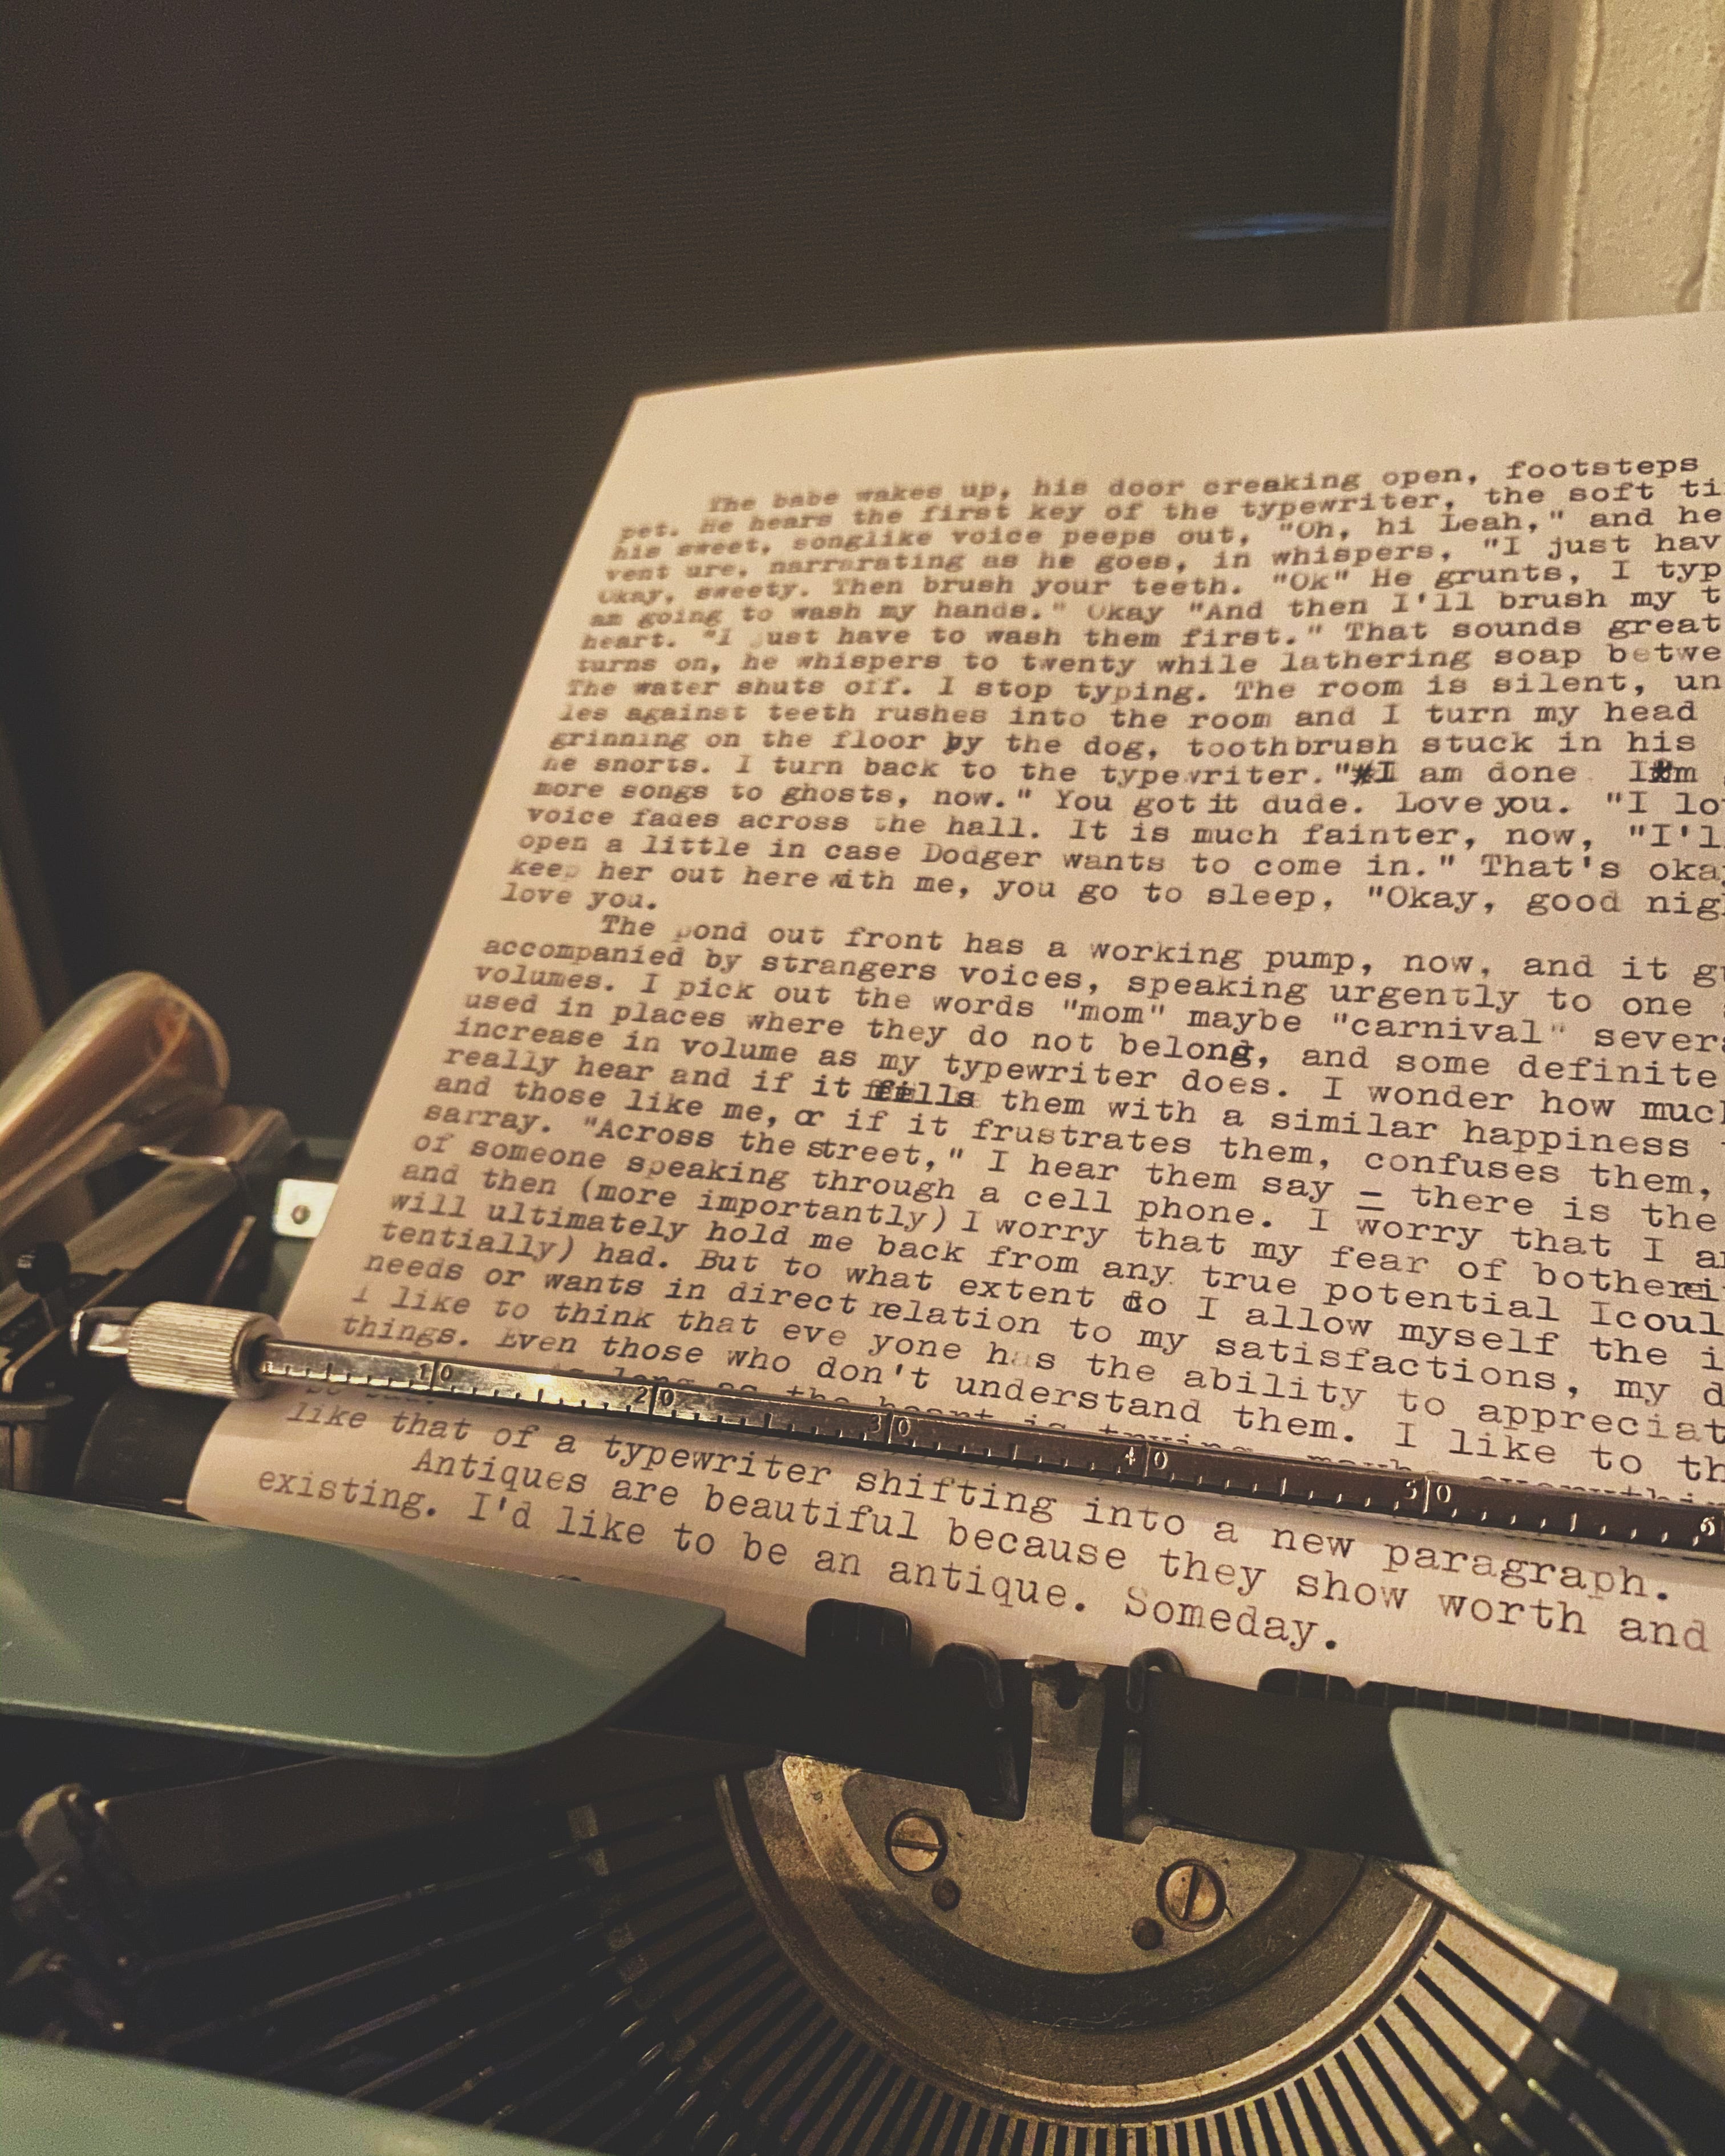 The babe wakes up, his door creaking open, footsteps
pet. He hears the first key of the typewriter, the soft ti
his sweet, songlike voice peeps out, "Oh, hi Leah," and he
vent ure, narrarating as he goes, in whispers, "I just hav
Okay, sweety. Then brush your teeth. "Ok" He grunts, I typ
am going to wash my hands." Okay "And then I'll brush my t
heart. "I just have to wash them first." That sounds great
turns on, he whispers to twenty while lathering soap betwe
The water shuts off. I stop typing. The room is silent, un
les against teeth rushes into the room and I turn my head
grinning on the floor by the dog, toothbrush stuck in his
he snorts. I turn back to the typewriter. "I am done I m
more songs to ghosts, now." You got it dude. Love you. "I lo
voice fades across the hall. It is much fainter, now, "I'l
open a little in case Dodger wants to come in." That's oka
keep her out here with me, you go to sleep, "Okay, good nig
love you.
The pond out front has a working pump, now, and it g
accompanied by strangers voices, speaking urgently to one
volumes. I pick out the words "mom" maybe "carnival" sever
used in places where they do not belong, and some definite
increase in volume as my typewriter does. I wonder how muc
really hear and if it fills them with a similar happiness
and those like me, or if it frustrates them, confuses them,
sarray. "Across the street," I hear them say = there is the
of someone speaking through a cell phone. I worry that I a
and then (more importantly) I worry that my fear of botheri
will ultimately hold me back from any true potential Icoul
tentially) had. But to what extent do I allow myself the i
needs or wants in direct relation to my satisfactions, my d
I like to think that eve yone has the ability to appreciat
things. Even those who don't understand them. I like to th
long as the heart is trying, maybe
like that of a typewriter shifting into a new paragraph.
Antiques are beautiful because they show worth and
existing. I'd like to be an antique. Someday.
10 20 30 40 50